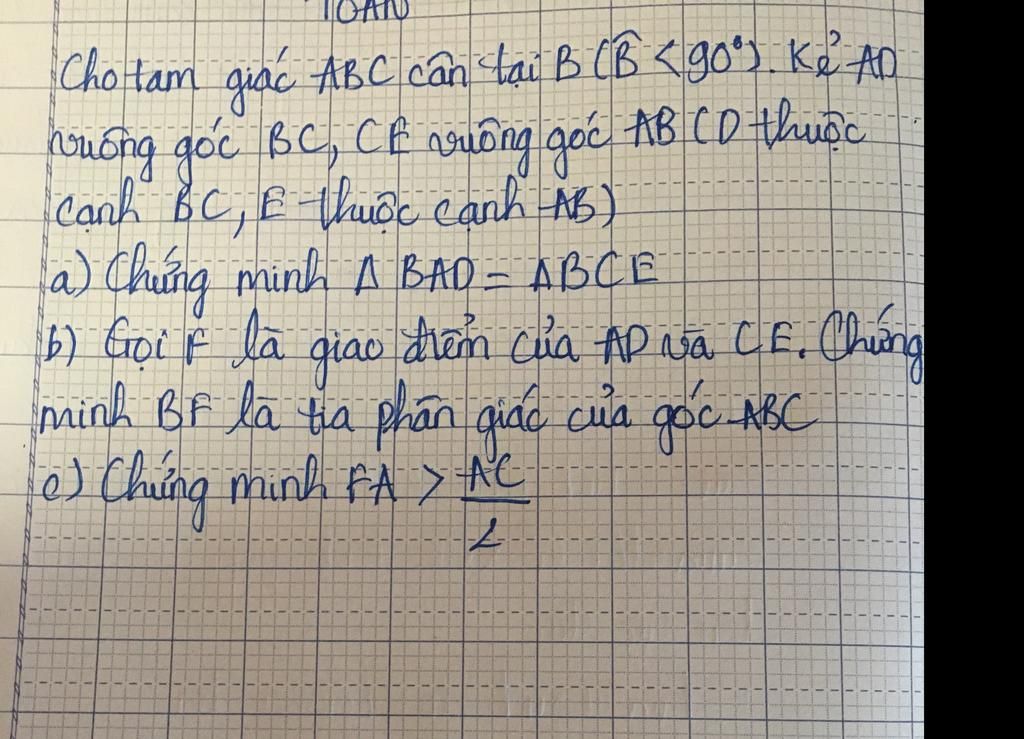 TOÁN
Cho tam giác ABC cân tại B (B̂ < 90°). Kẻ AD
vuông góc BC, CE vuông góc AB (D thuộc
cạnh BC, E thuộc cạnh AB)
a) Chứng minh Δ BAD = ΔBCE
b) Gọi F là giao điểm của AD và CE. Chứng
minh BF là tia phân giác của góc ABC
c) Chứng minh FA > AC/2